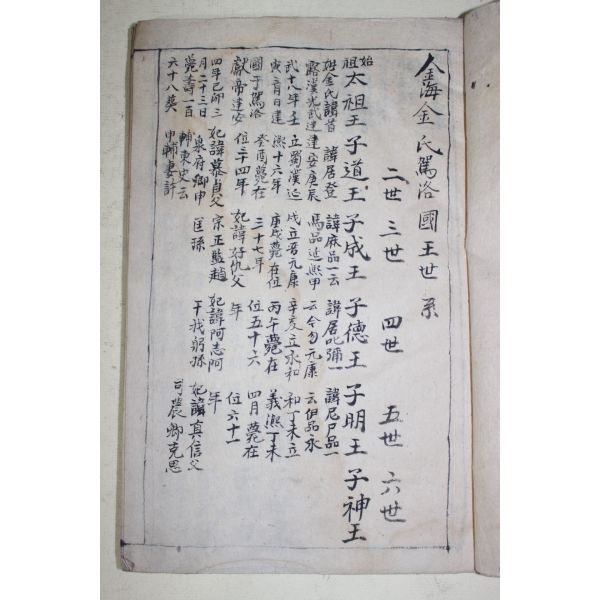 金海金氏駕洛國王世系
二世 三世 四世 五世 六世
始祖太祖王 子道王 子成王 子德王 子明王 子神王
姓金氏諱首
露漢光武建
武十八年壬
寅三月日建
國于駕洛
獻帝建安
四年己卯三
月二十三日
薨壽一百
六十八癸
諱居登
建安庚辰
立蜀漢延
熙十六年
癸酉薨在
位二十四年
妃諱慕貞父
泉府卿申
輔東史云
申輔妻許
諱麻品一云
馬品延熙甲
戌立晉元康
庚戌薨在位
三十七年
妃諱好仇父
宗正監趙
匡孫
諱居叱彌一
云今勿元康
辛亥立永和
丙午薨在
位五十六
年
妃諱阿志阿
干我躬孫
諱尼尸品一
云伊品永
和丁未立
義熙丁未
四月薨在
位六十一
年
妃諱真信父
司農卿克思